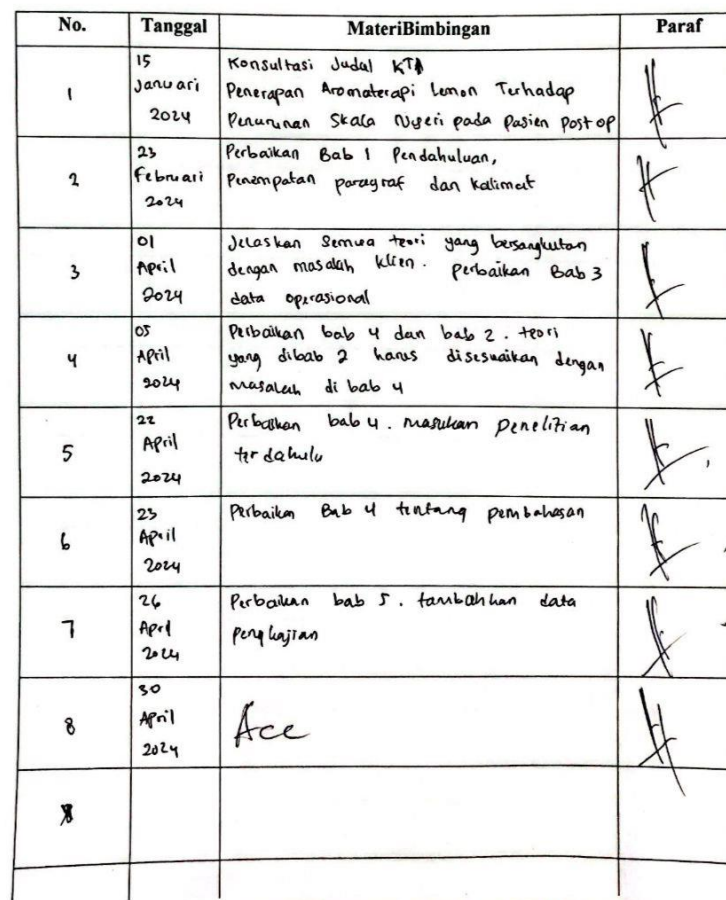 No. Tanggal MateriBimbingan Paraf
1
15
Januari
2024
Konsultasi Judul KTI
Penerapan Aromaterapi Lemon Terhadap
Penurunan Skala Nyeri pada Pasien Post op
2
23
Februari
2024
Perbaikan Bab 1 Pendahuluan,
Penempatan paragraf dan kalimat
3
01
April
2024
Jelaskan Semua teori yang bersangkutan
dengan masalah klien. perbaikan Bab 3
data operasional
4
05
April
2024
Perbaikan bab 4 dan bab 2. teori
yang dibab 2 harus disesuaikan dengan
masalah di bab 4
5
22
April
2024
Perbaikan bab 4. masukan penelitian
terdahulu
6
23
April
2024
Perbaikan Bab 4 tentang pembahasan
7
26
April
2024
Perbaikan bab 5. tambahkan data
pengkajian
8
30
April
2024
Acc